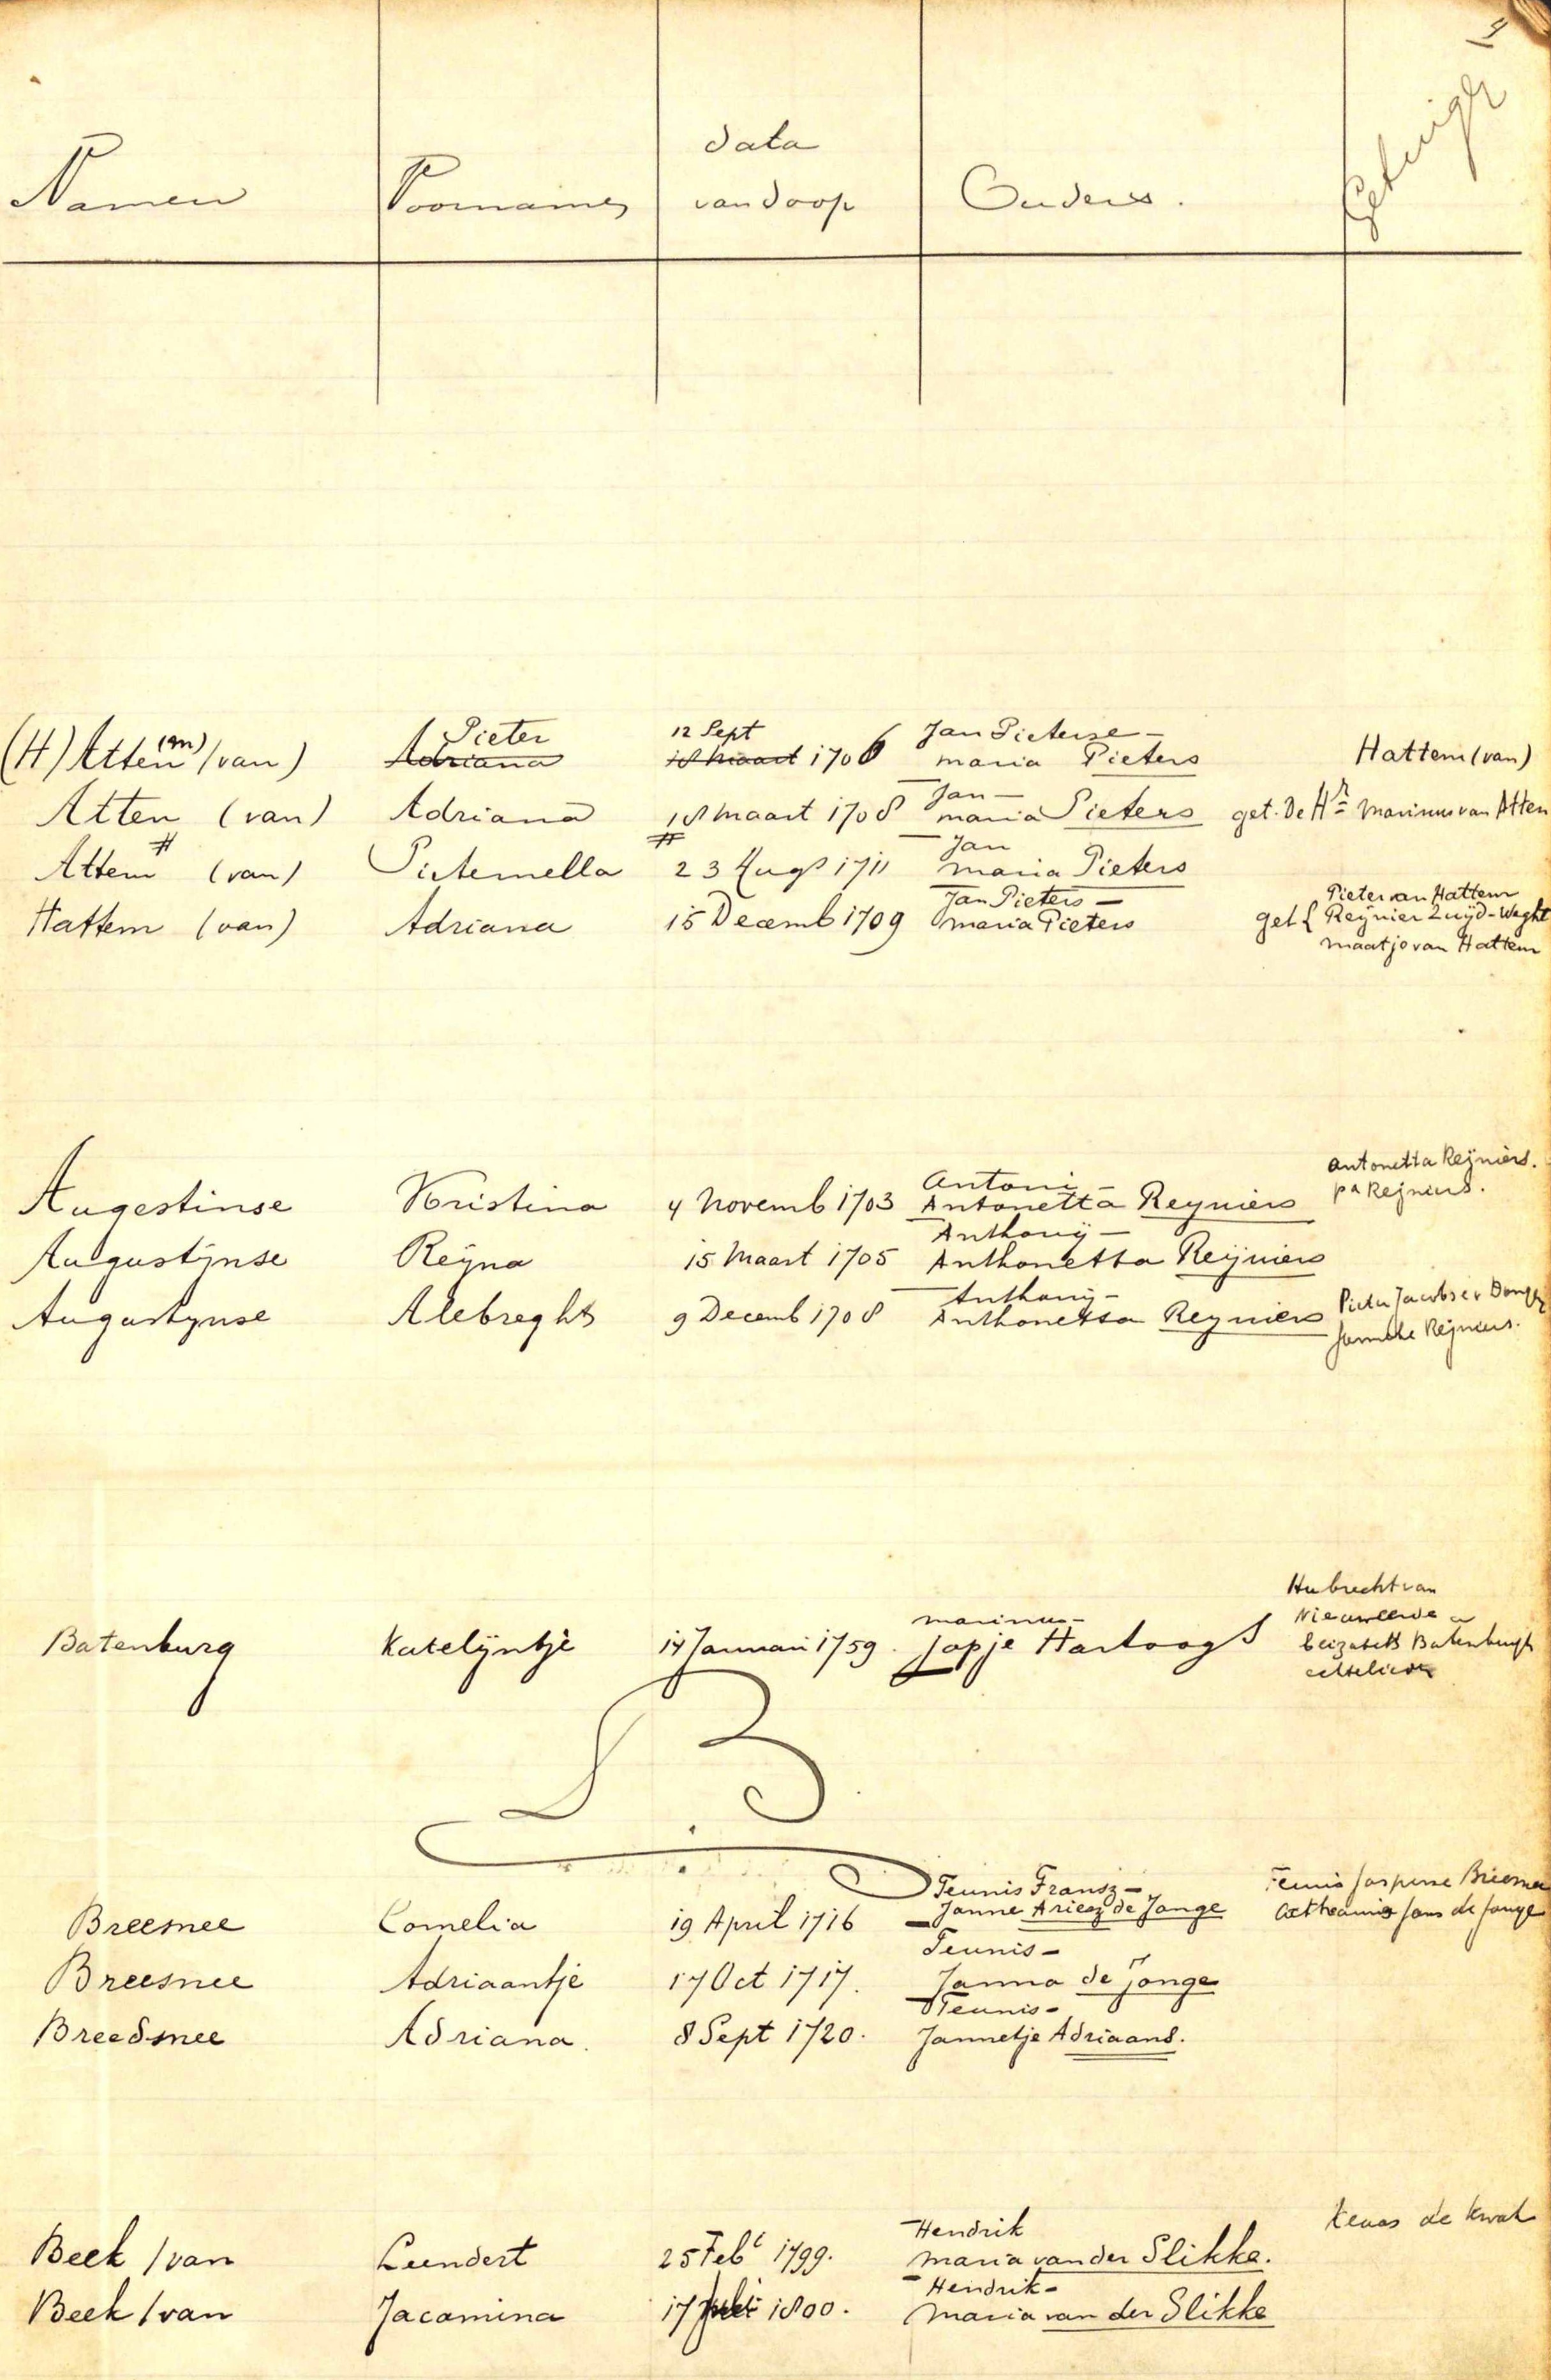 4
Namen Voornamen data van doop Ouders. Getuige
(H) Atten (m) (van) Pieter Adriana 12 Sept 18 Maart 1706 Jan Pieterse - Maria Pieters Hattem (van)
Atten (van) Adriana 18 Maart 1708 Jan - Maria Pieters get. De Hr = Marinus van Atten
Attem # (van) Pieternella # 23 Augs 1711 Jan Maria Pieters
Hattem (van) Adriana 15 Decemb 1709 Jan Pieters - Maria Pieters get { Pieter van Hattem
Reÿnier Zuÿd-Weght
Maatje van Hattem
Augestinse Kristina 4 Novemb 1703 Antoni - Antonetta Reyniers Antonetta Reÿniers.
pa Reÿniers.
Augustÿnse Reÿna 15 Maart 1705 Anthonÿ - Anthonetta Reÿniers
Augustynse Alebreghts 9 Decemb 1708 Anthonÿ - Anthonetta Reyniers Pieter Jacobse
Janneke Reÿniers.
Batenburg Katelÿntje 14 Januari 1759. Marinus - Jopje Hartoogs Hubrecht van
Nieuweerde
Elizabeth Batenburgh
echtelieden
B
Breesnee Cornelia 19 April 1716 Teunis Fransz - Janne Ariesz de Jonge Teunis Jasperse Briesnee
Catharina Jans de Jonge
Breesnee Adriaantje 17 Oct 1717. Teunis - Janna de Jonge
Breedsnee Adriana. 8 Sept 1720. Teunis - Jannetje Adriaans.
Beek / van Leendert 25 Feb 1799. Hendrik Maria van der Slikke. Klaas de Kwak
Beek / van Jacomina 17 Juli 1800. Hendrik - Maria van der Slikke